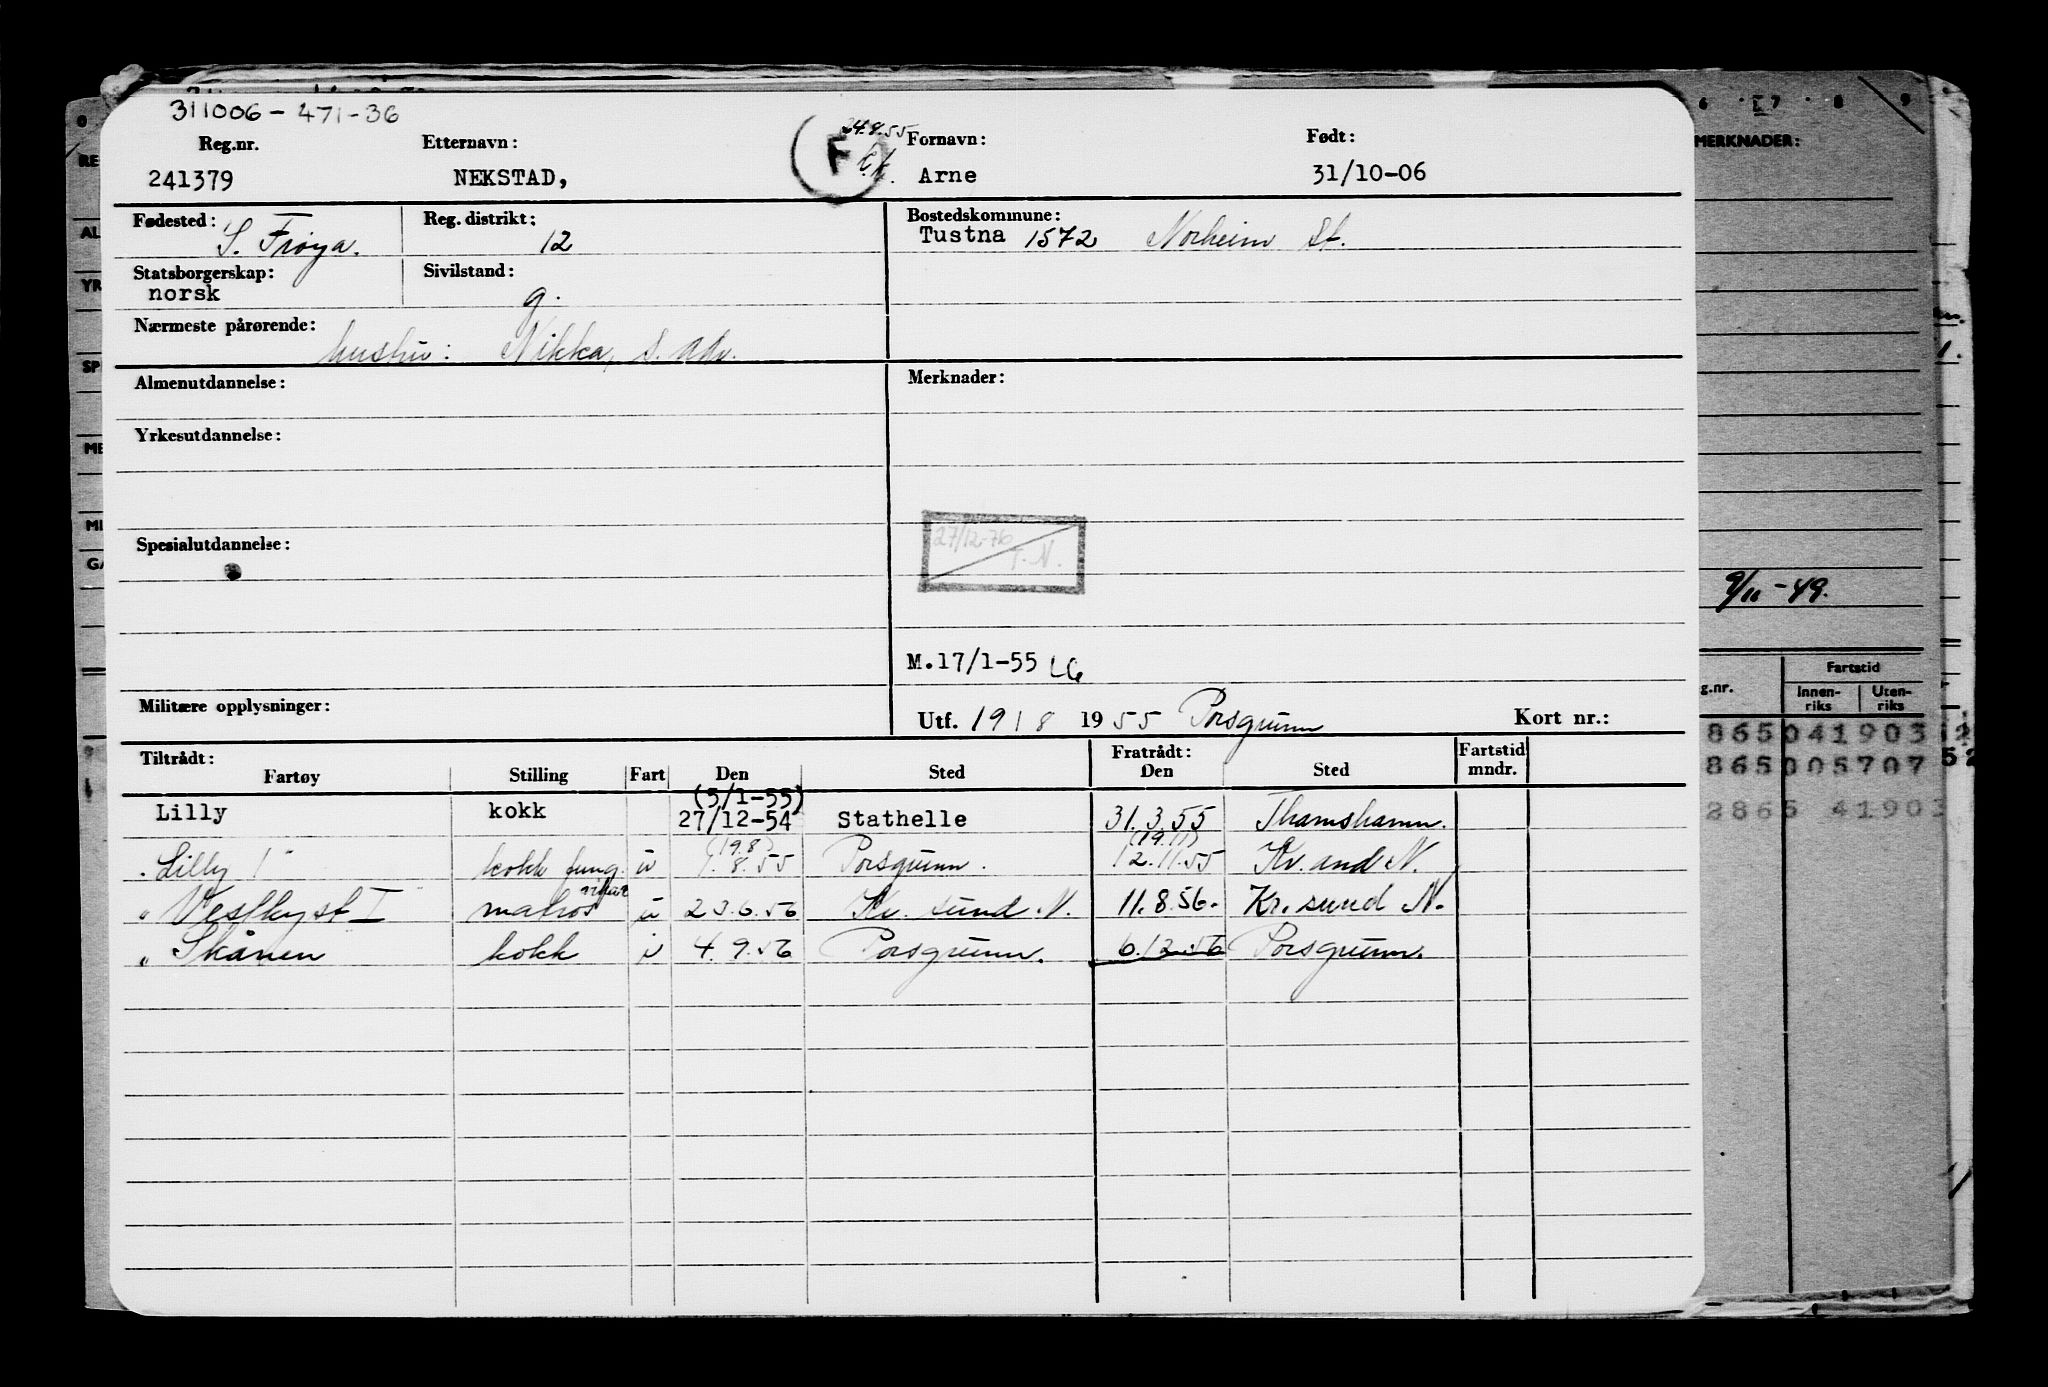 311006-471-36
Reg.nr. Etternavn: F 24.8.55 Fornavn: Født:
241379 NEKSTAD, Arne 31/10-06
Fødested: S. Frøya. Reg. distrikt: 12 Bostedskommune: Tustna 1572 Norheim st.
Statsborgerskap: norsk Sivilstand: g.
Nærmeste pårørende: hustru: Nikka, s. adr.
Almenutdannelse: Merknader:
Yrkesutdannelse:
27/12-76
T. N.
Spesialutdannelse:
M.17/1-55 LG
Militære opplysninger: Utf. 1918 1955 Porsgrunn Kort nr.:
Tiltrådt: Fratrådt: Fartstid
Fartøy Stilling Fart Den Sted Den Sted mndr.
(5/1-55)
Lilly kokk 27/12-54 Stathelle 31.3.55 Thamshamn.
(19.8) (19.11)
Lilly kokk fung. u 1.8.55 Porsgrunn. 12.11.55 Kr. and N.
" Vestkyst I matros u 23.6.56 Kr. sund N. 11.8.56. Kr. sund N.
" Skånen kokk u 4.9.56 Porsgrunn. 6.12.56 Porsgrunn.
6 7 8 9
MERKNADER:
9/11-49.
g.nr. Fartstid
Innen-riks Uten-riks
865041903
865005707
2865 41903